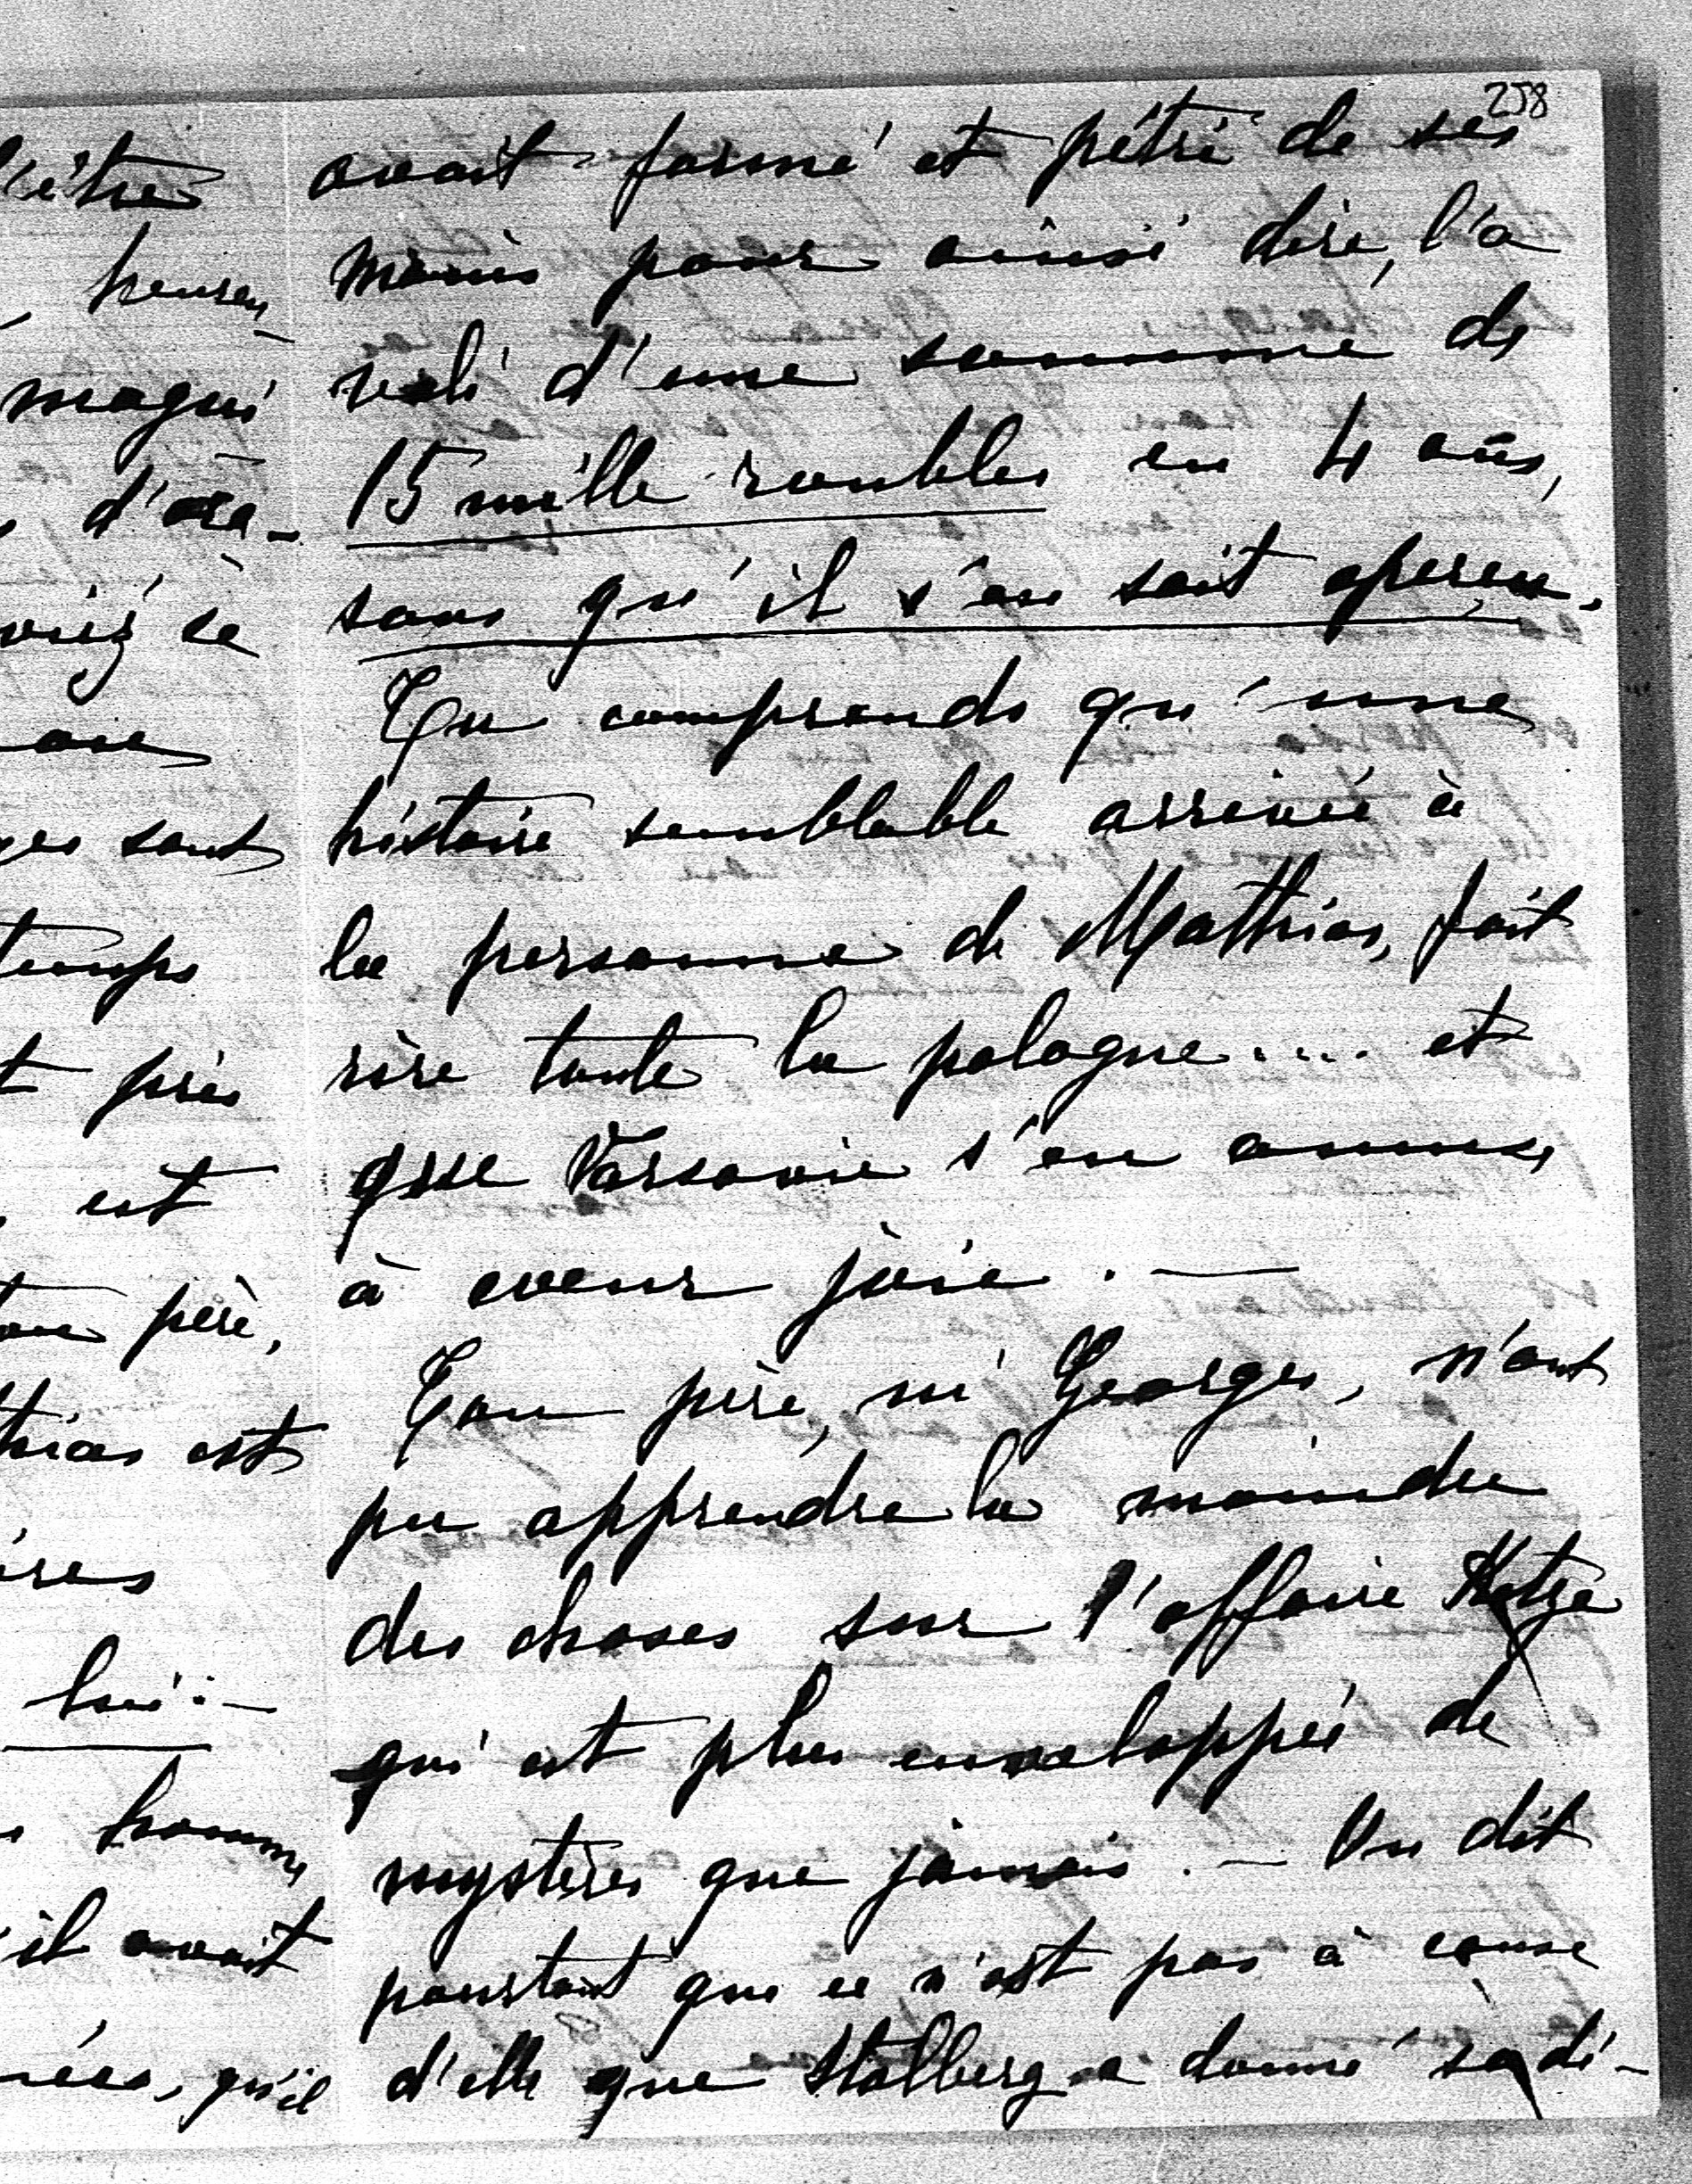 258
l'être
heureu-
magni
d'ora-
oriez ce
ges sont
temps
t près
est
père,
thias est
ires
lui.-
homme
il avait
nées, qu'il
avait formé et pétri de ses
mains pour ainsi dire, l'a
volé d'une somme de
15 mille roubles en 4 ans,
sans qu'il s'en soit aperçu.
Tu comprends qu'une
histoire semblable arrivée à
la personne de Mathias, fait
rire toute la pologne.... et
que Varsovie s'en amuse
à coeur joie. —
Ton père, ni Georges, n'ont
pu apprendre la moindre
des choses sur l'affaire Kotze
qui est plus enveloppée de
mystères que jamais. — On dit
pourtant que ce n'est pas à cause
d'elle que Stolberg a donné sa dé-